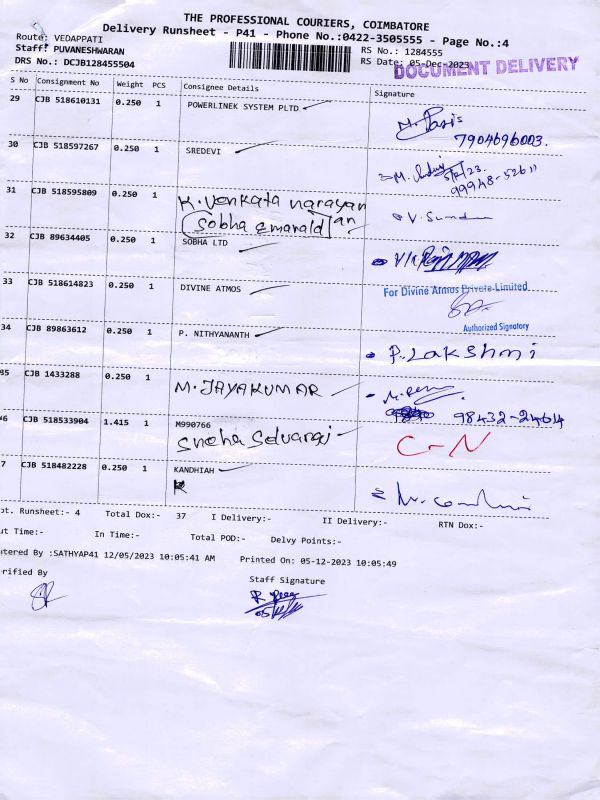 THE PROFESSIONAL COURIERS, COIMBATORE
Delivery Runsheet - P41 - Phone No.:0422-3505555 - Page No.:4
Route: VEDAPPATI
Staff: PUVANESHWARAN
DRS No.: DCJB128455504
RS No.: 1284555
RS Date: 05-Dec-2023
DOCUMENT DELIVERY
S No Consignment No Weight PCS Consignee Details Signature
29 CJB 518610131 0.250 1 POWERLINEK SYSTEM PLTD
7904696003.
30 CJB 518597267 0.250 1 SREDEVI
99948-52611
31 CJB 518595809 0.250 1 K. Venkata narayan
an
Sobha Emarald
32 CJB 89634405 0.250 1 SOBHA LTD
33 CJB 518614823 0.250 1 DIVINE ATMOS For Divine Atmos Private Limited
Authorized Signatory
34 CJB 89863612 0.250 1 P. NITHYANANTH P. Lakshmi
35 CJB 1433288 0.250 1 M. JAYAKUMAR
98432-24614
36 CJB 518533904 1.415 1 M990766 C-N
Sneha Selvaraj
7 CJB 518482228 0.250 1 KANDHIAH
K
ot. Runsheet:- 4 Total Dox:- 37 I Delivery:- II Delivery:- RTN Dox:-
ut Time:- In Time:- Total POD:- Delvy Points:-
ntered By :SATHYAP41 12/05/2023 10:05:41 AM Printed On: 05-12-2023 10:05:49
rified By Staff Signature